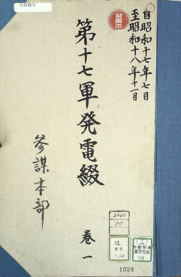 自昭和十七年七月
至昭和十八年十一月
第十七軍発電綴
巻一
参謀本部
1024